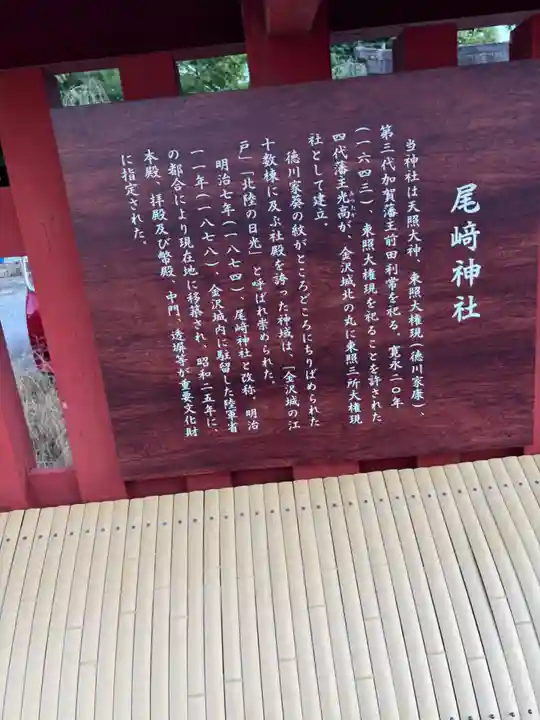 尾﨑神社
当神社は天照大神、東照大権現(徳川家康)、
第三代加賀藩主前田利常を祀る、寛永二〇年
(一六四三)、東照大権現を祀ることを許された
四代藩主光高が、金沢城北の丸に東照三所大権現
社として建立。
徳川家葵の紋がところどころにちりばめられた
十数棟に及ぶ社殿を誇った神域は、「金沢城の江
戸」「北陸の日光」と呼ばれ崇められた。
明治七年(一八七四)、尾﨑神社と改称。明治
一一年(一八七八)、金沢城内に駐留した陸軍省
の都合により現在地に移築され、昭和二五年に、
本殿、拝殿及び幣殿、中門、透塀等が重要文化財
に指定された。